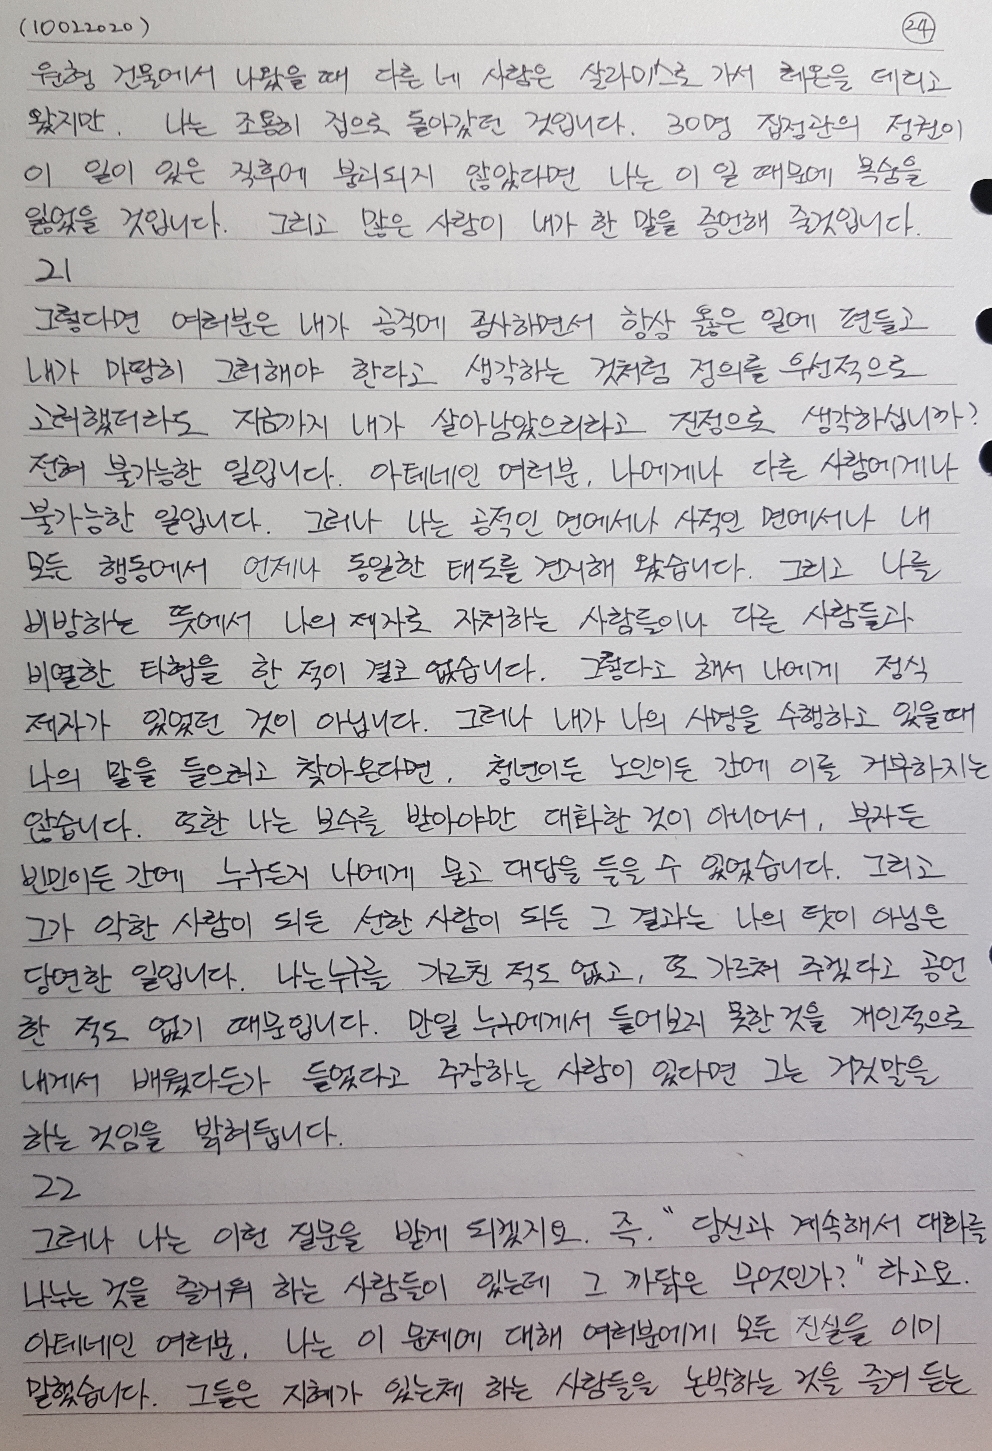 (10022020) 24
원형 건물에서 나왔을 때 다른 네 사람은 살라미스로 가서 레온을 데리고
왔지만, 나는 조용히 집으로 돌아갔던 것입니다. 30명 집정관의 정권이
이 일이 있은 직후에 붕괴되지 않았다면 나는 이 일 때문에 목숨을
잃었을 것입니다. 그리고 많은 사람이 내가 한 말을 증언해 줄것입니다.
21
그렇다면 여러분은 내가 공적에 종사하면서 항상 옳은 일에 편들고
내가 마땅히 그러해야 한다고 생각하는 것처럼 정의를 우선적으로
고려했더라도 지금까지 내가 살아남았으리라고 진정으로 생각하십니까?
전혀 불가능한 일입니다. 아테네인 여러분, 나에게나 다른 사람에게나
불가능한 일입니다. 그러나 나는 공적인 면에서나 사적인 면에서나 내
모든 행동에서 언제나 동일한 태도를 견지해 왔습니다. 그리고 나를
비방하는 뜻에서 나의 제자로 자처하는 사람들이나 다른 사람들과
비열한 타협을 한 적이 결코 없습니다. 그렇다고 해서 나에게 정식
제자가 있었던 것이 아닙니다. 그러나 내가 나의 사명을 수행하고 있을때
나의 말을 들으려고 찾아온다면, 청년이든 노인이든 간에 이를 거부하지는
않습니다. 또한 나는 보수를 받아야만 대화한 것이 아니어서, 부자든
빈민이든 간에 누구든지 나에게 묻고 대답을 들을 수 있었습니다. 그리고
그가 악한 사람이 되든 선한 사람이 되든 그 결과는 나의 탓이 아님은
당연한 일입니다. 나는누구를 가르친 적도 없고, 또 가르쳐 주겠다고 공언
한 적도 없기 때문입니다. 만일 누구에게서 들어보지 못한 것을 개인적으로
내게서 배웠다든가 들었다고 주장하는 사람이 있다면 그는 거짓말을
하는 것임을 밝혀둡니다.
22
그러나 나는 이런 질문을 받게 되겠지요. 즉, "당신과 계속해서 대화를
나누는 것을 즐거워 하는 사람들이 있는데 그 까닭은 무엇인가?" 하고요.
아테네인 여러분, 나는 이 문제에 대해 여러분에게 모든 진실을 이미
말했습니다. 그들은 지혜가 있는체 하는 사람들을 논박하는 것을 즐겨 듣는